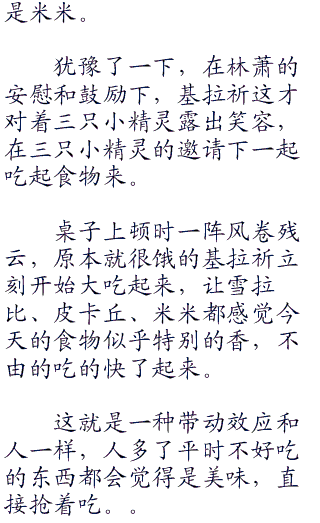 是米米。
犹豫了一下，在林萧的
安慰和鼓励下，基拉祈这才
对着三只小精灵露出笑容，
在三只小精灵的邀请下一起
吃起食物来。
桌子上顿时一阵风卷残
云，原本就很饿的基拉祈立
刻开始大吃起来，让雪拉
比、皮卡丘、米米都感觉今
天的食物似乎特别的香，不
由的吃的快了起来。
这就是一种带动效应和
人一样，人多了平时不好吃
的东西都会觉得是美味，直
接抢着吃。。